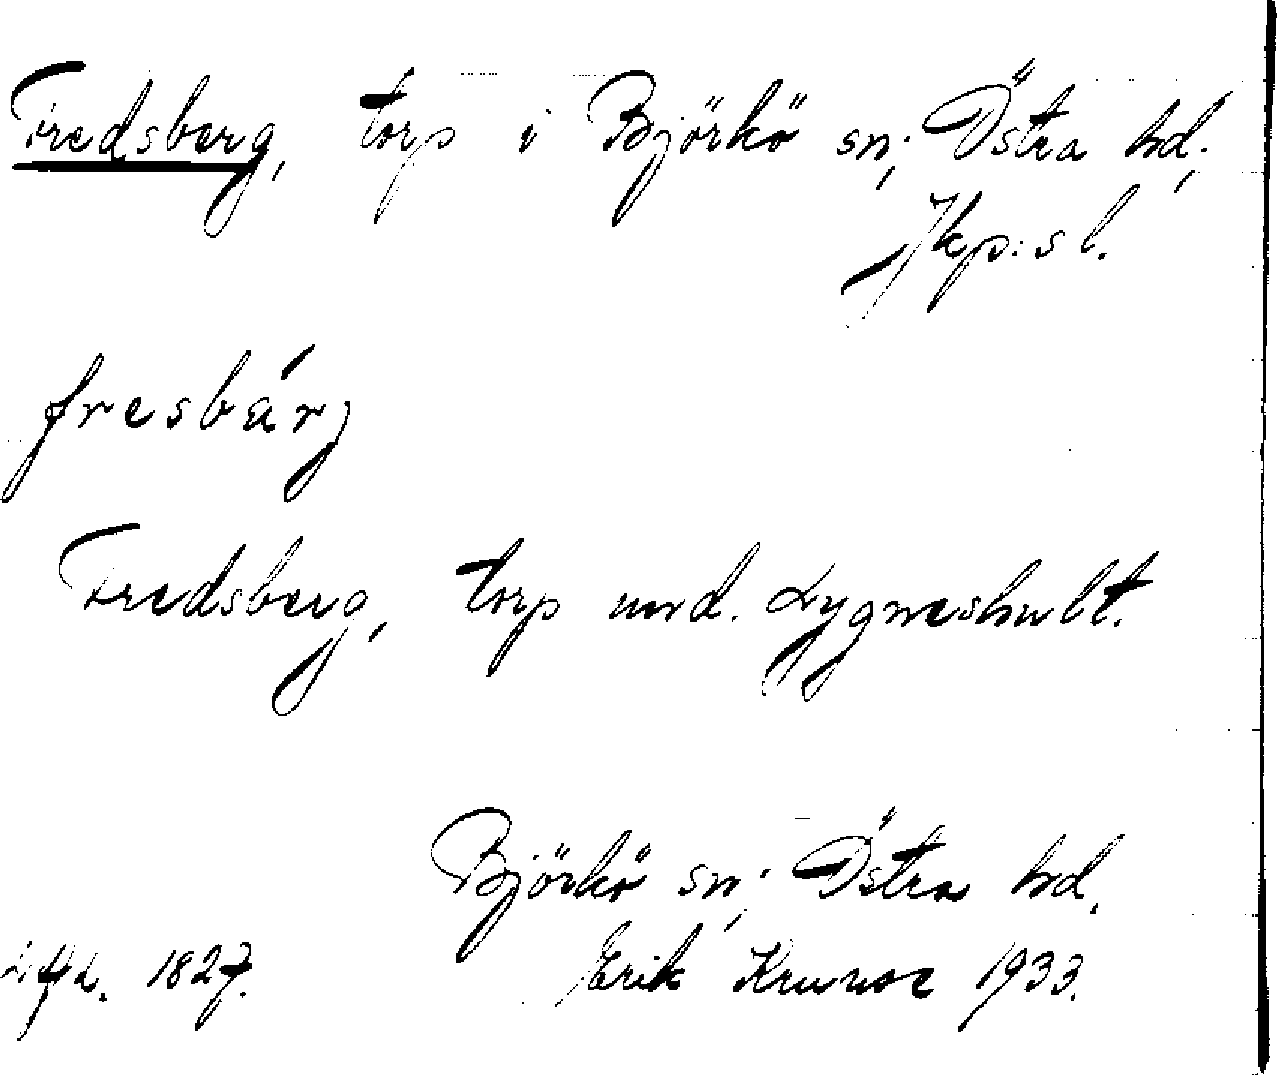 Fredsberg, torp i Björkö sn; Östra hd;
Jkp:s l.
fresbárj
Fredsberg, torp und. Lygneshult.
Björkö sn; Östra hd.
1827. Erik Krunoe 1933.